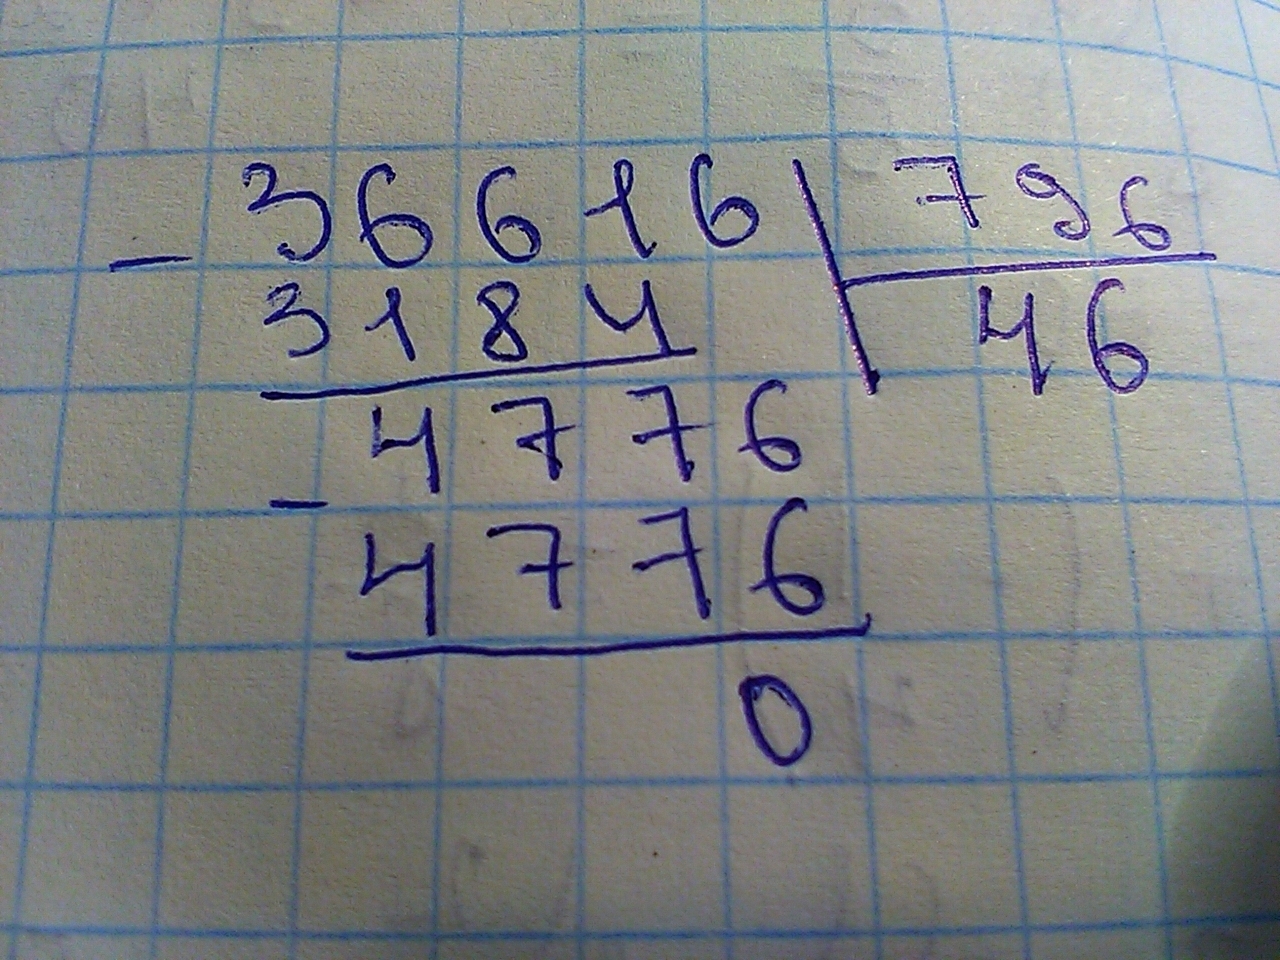 -36616 | 796
3184 46
4776
-
4776
0